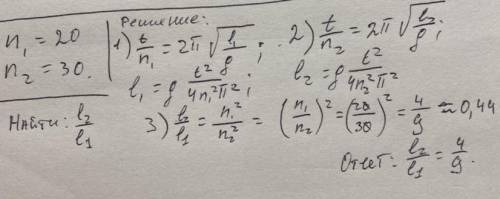 n₁ = 20
n₂ = 30.
Найти: l₂/l₁
Решение:
1) t/n₁ = 2π √(l₁/g) ; 2) t/n₂ = 2π √(l₂/g) ;
l₁ = g t²/(4n₁²π²) ; l₂ = g t²/(4n₂²π²)
3) l₂/l₁ = n₁²/n₂² = (n₁/n₂)² = (20/30)² = 4/9 ≈ 0,44
Ответ: l₂/l₁ = 4/9.